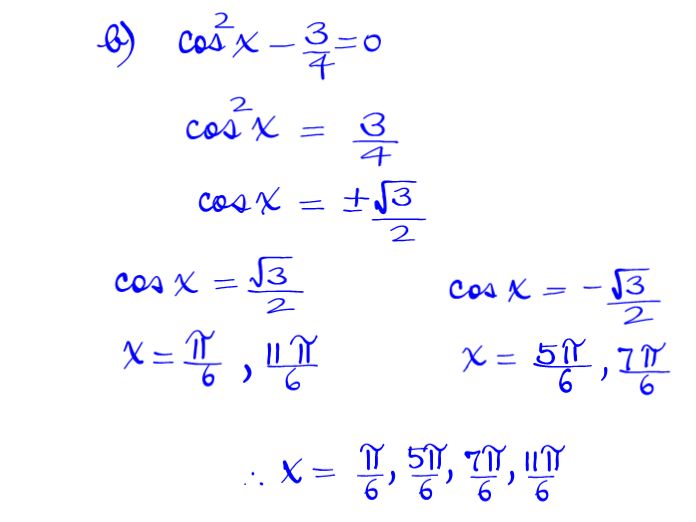 b) cos²x − 3/4 = 0
cos²x = 3/4
cos x = ±√3/2
cos x = √3/2    cos x = −√3/2
x = π/6, 11π/6    x = 5π/6, 7π/6
∴ x = π/6, 5π/6, 7π/6, 11π/6